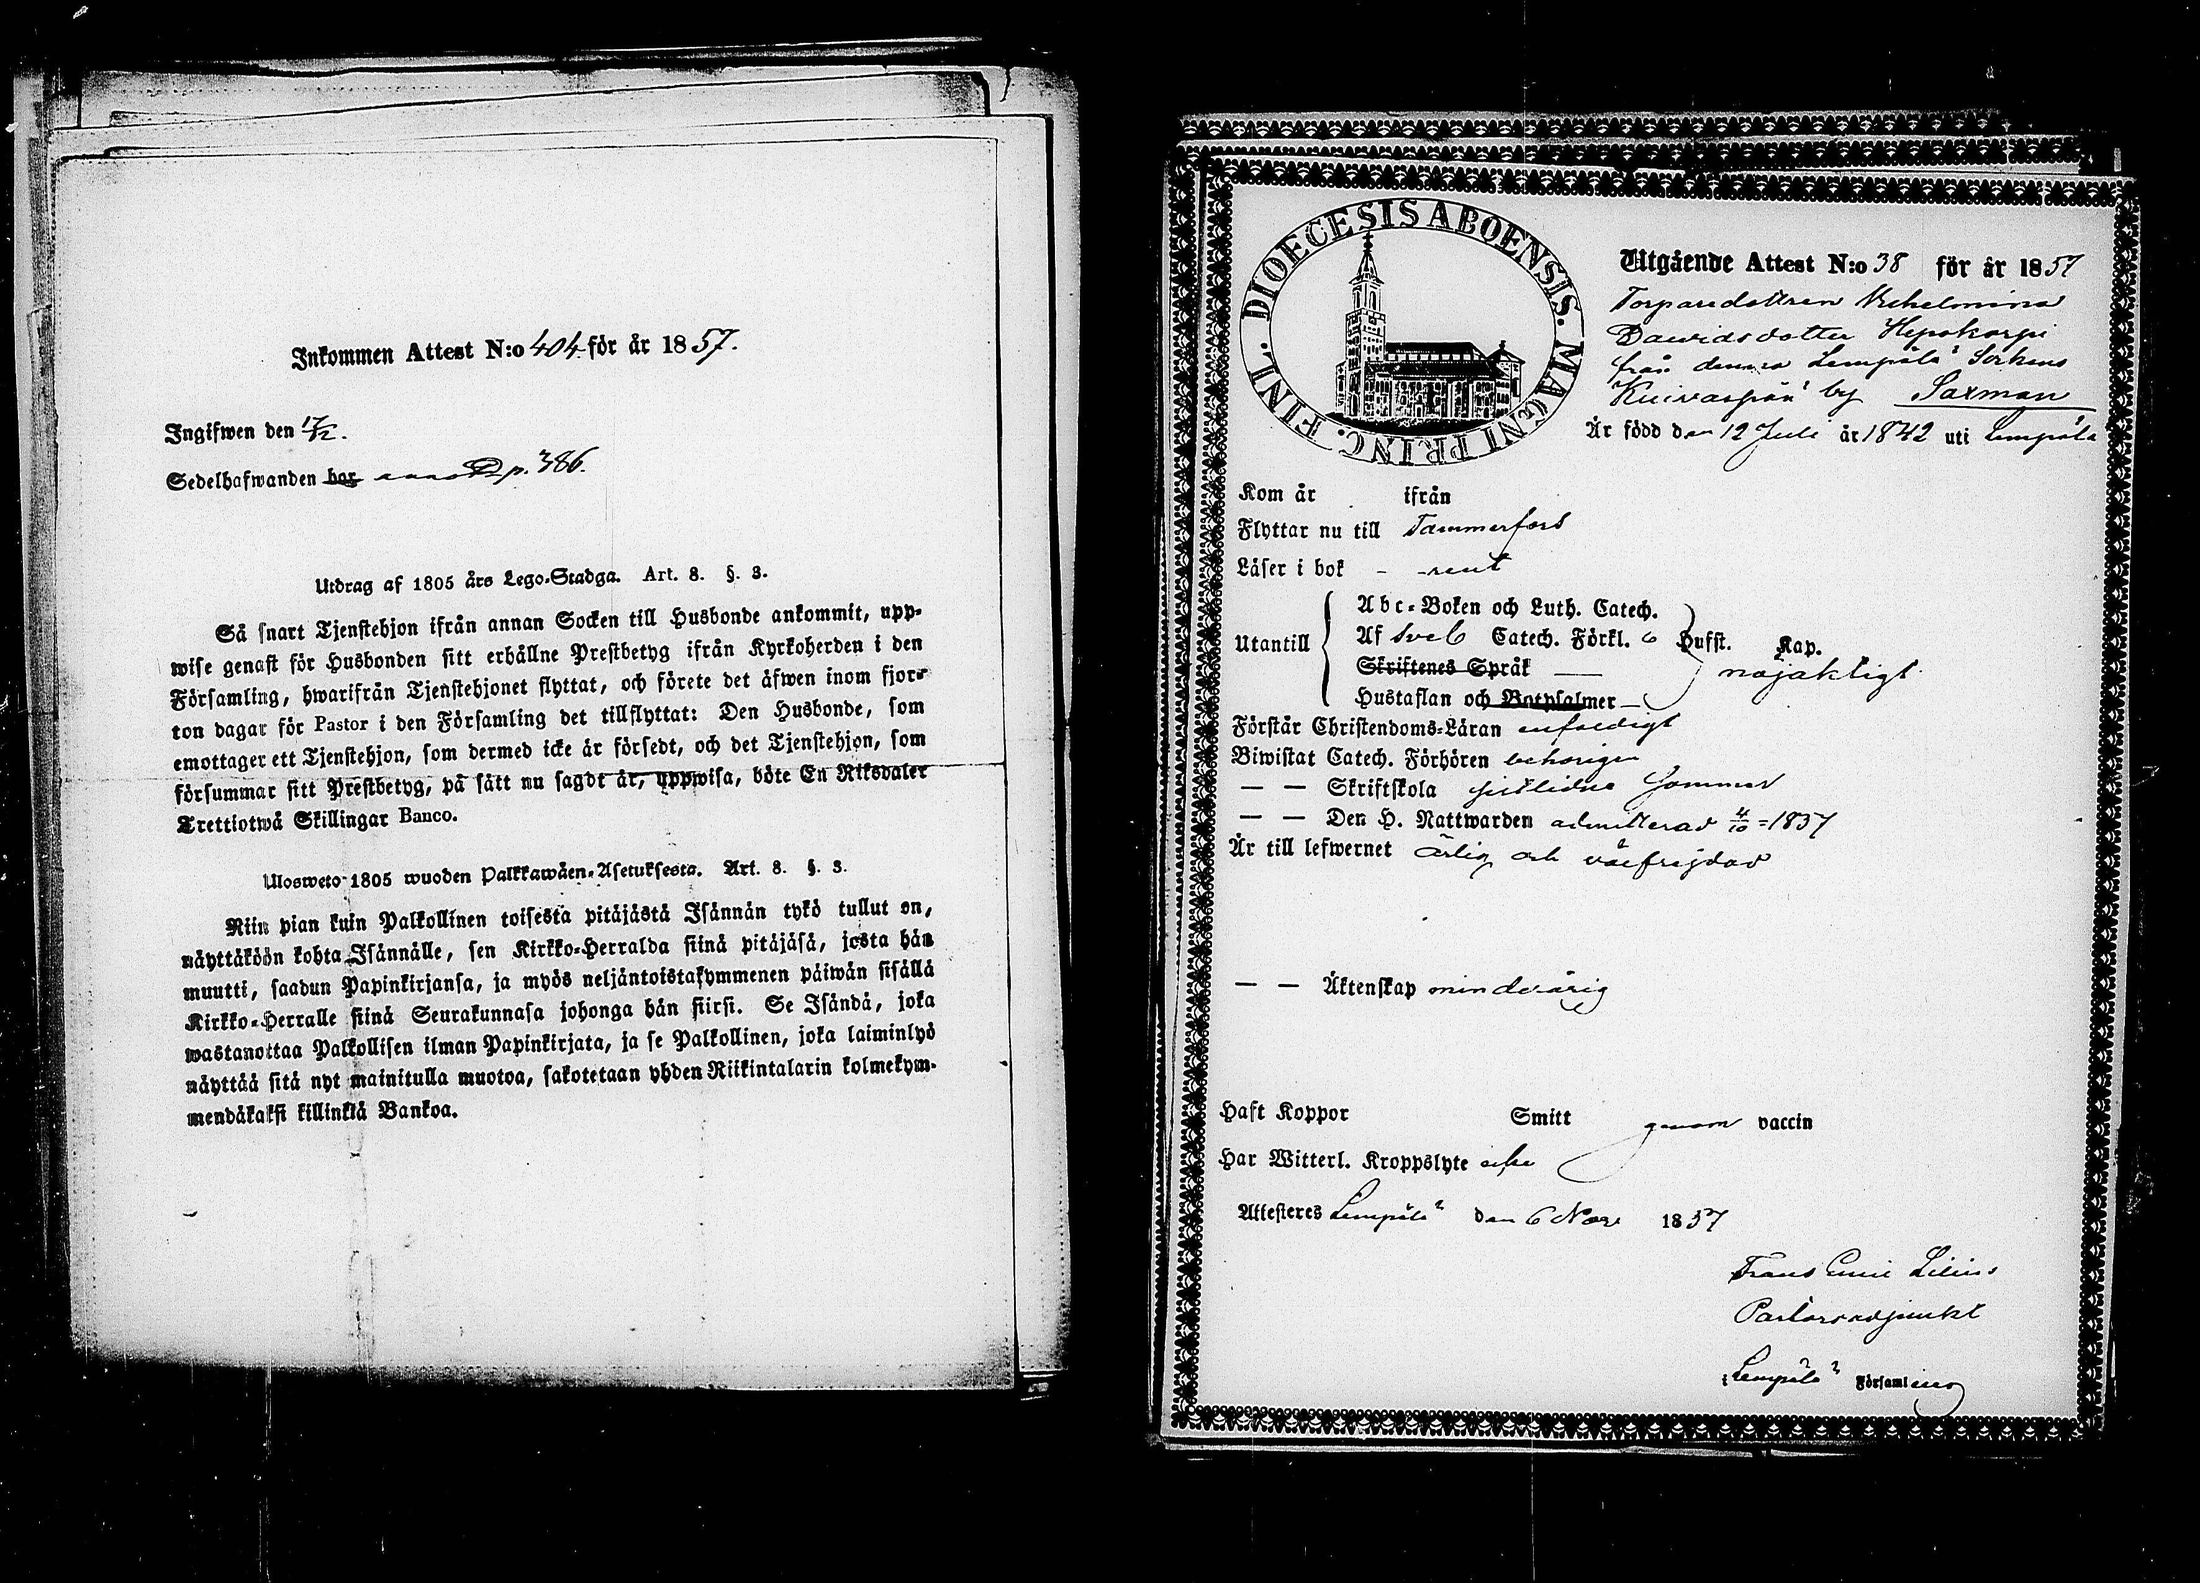 Inkommen Attest N:o 404 för år 1857.
Ingifwen den 17/12.
Sedelhafwanden bor p. 386.
Utdrag af 1805 års Lego-Stadga. Art. 8. §. 3.
Så snart Tjenstehjon ifrån annan Socken till Husbonde ankommit, upp-
wise genast för Husbonden sitt erhållne Prestbetyg ifrån Kyrkoherden i den
Församling, hwarifrån Tjenstehjonet flyttat, och förete det äfwen inom fjor-
ton dagar för Pastor i den Församling det tillflyttat: Den Husbonde, som
emottager ett Tjenstehjon, som dermed icke är försedt, och det Tjenstehjon, som
försummar sitt Prestbetyg, på sätt nu sagdt är, uppwisa, böte En Riksdaler
Trettiotwå Skillingar Banco.
Ulosweto 1805 wuoden Palkkawäen-Asetuksesta. Art. 8. §. 3.
Niin pian kuin Palkollinen toisesta pitäjästä Isännän tykö tullut on,
näyttäköön kohta Isännälle, sen Kirkko-Herralda siinä pitäjäsä, josta hän
muutti, saadun Papinkirjansa, ja myös neljäntoistakymmenen päiwän sisällä
Kirkko-Herralle siinä Seurakunnasa johonga hän siirsi. Se Isändä, joka
wastanottaa Palkollisen ilman Papinkirjata, ja se Palkollinen, joka laiminlyö
näyttää sitä nyt mainitulla muotoa, sakotetaan yhden Riikintalarin kolmekym-
mendäkaksi killinkiä Bankoa.
DIOECESIS ABOENSIS. MAGNI PRINC. FINL.
Utgående Attest N:o 38 för år 1857
Torparedottren Wilhelmina
Dawidsdotter Hepokorpi
från denna Lempälä Sockens
Kuivaspää by Saxman
Är född den 12 Juli år 1842 uti Lempälä
Kom år ifrån
Flyttar nu till Tammerfors
Läser i bok - rent
Utantill
Abc-Boken och Luth. Catech.
Af Sveb Catech. Förkl. 6 Hufst. Kap.
Skriftenes Språk
nöjaktigt
Hustaflan och Botpsalmer
Förstår Christendoms-Läran enfaldigt
Biwistat Catech. Förhören behörigen
— — Skriftskola sistlidne sommar
— — Den H. Nattwarden admitterad 4/10 1857
Är till lefwernet ärlig och välfrejdad
— — Äktenskap mindeårig
Haft Koppor Smitt genom vaccin
Har Witterl. Kroppslyte icke
Attesteres Lempälä den 6 Nov. 1857
Frans Emil Lilius
Pastorsadjunkt
i Lempälä Församling